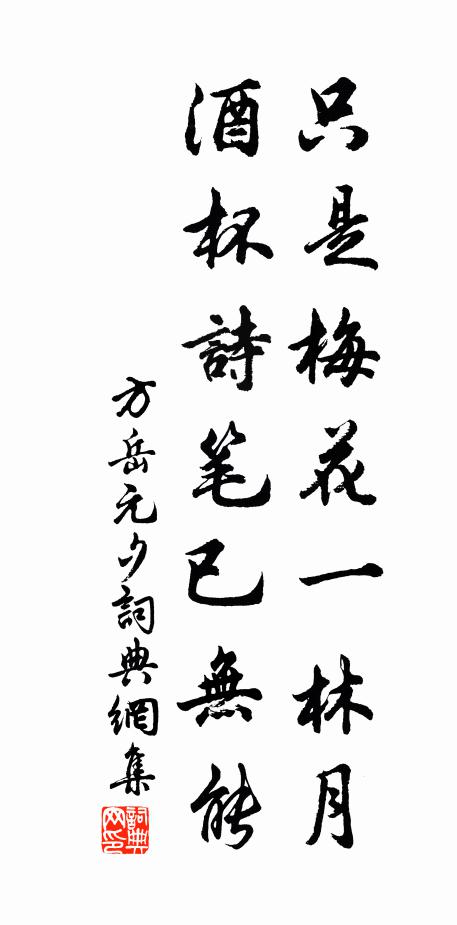 只是梅花一林月
酒杯詩笔已無能
方岳元夕詞典網集
詞典网印